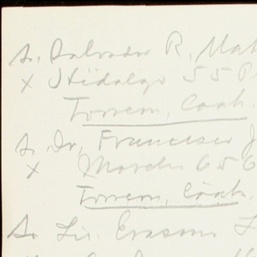 Sr. Salvador R. Mal
x Hidalgo 55 P
Torreon, Coah.
Sr. Dr. Francisco J
x Morelos 656
Torreon, Coah.
Sr. Lic. Erasmo L